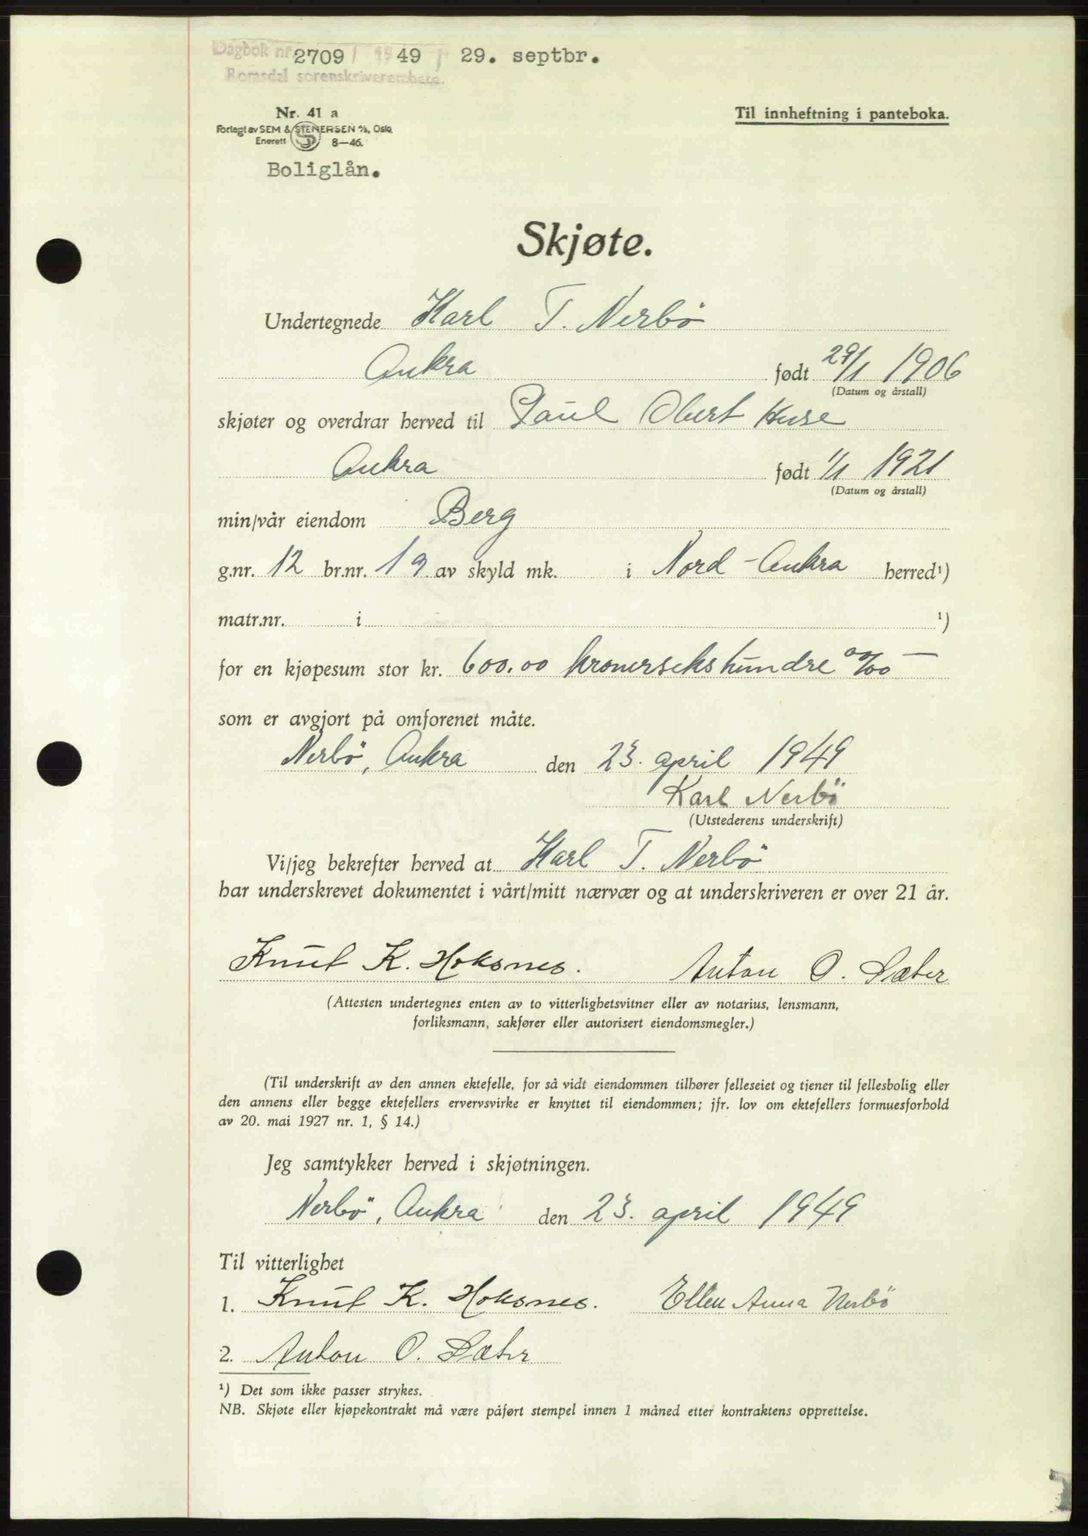 Dagbok nr. 2709 / 1949 / 29. septbr.
Romsdal sorenskriverembete.
Nr. 41 a
Til innheftning i panteboka.
Forlagt av SEM & STENERSEN A/S, Oslo.
Enerett 8—46.
Boliglån.
Skjøte.
Undertegnede Karl T. Nerbö
Aukra født 29/1 1906
(Datum og årstall)
skjøter og overdrar herved til Paul Obert Huse
Aukra født 1/1 1921
(Datum og årstall)
min/vår eiendom Berg
g.nr. 12 br.nr. 19 av skyld mk. i Nord-Aukra herred¹)
matr.nr. i ¹)
for en kjøpesum stor kr. 600.00 kronersekshundre 00/00 —
som er avgjort på omforenet måte.
Nerbö, Aukra den 23. april 1949
Karl Nerbö
(Utstederens underskrift)
Vi/jeg bekrefter herved at Karl T. Nerbö
har underskrevet dokumentet i vårt/mitt nærvær og at underskriveren er over 21 år.
Knut K. Hoksnes. Anton O. Sæter
(Attesten undertegnes enten av to vitterlighetsvitner eller av notarius, lensmann,
forliksmann, sakfører eller autorisert eiendomsmegler.)
(Til underskrift av den annen ektefelle, for så vidt eiendommen tilhører felleseiet og tjener til fellesbolig eller
den annens eller begge ektefellers ervervsvirke er knyttet til eiendommen; jfr. lov om ektefellers formuesforhold
av 20. mai 1927 nr. 1, § 14.)
Jeg samtykker herved i skjøtningen.
Nerbö, Aukra den 23. april 1949
Til vitterlighet
1. Knut K. Hoksnes. Ellen Anna Nerbö
2. Anton O. Sæter
¹) Det som ikke passer strykes.
NB. Skjøte eller kjøpekontrakt må være påført stempel innen 1 måned etter kontraktens opprettelse.